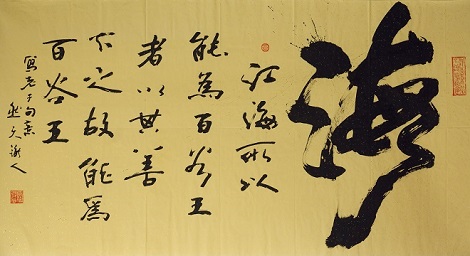 海
江海所以
能為百谷王
者以其善
下之故能為
百谷王
寫老子句
人